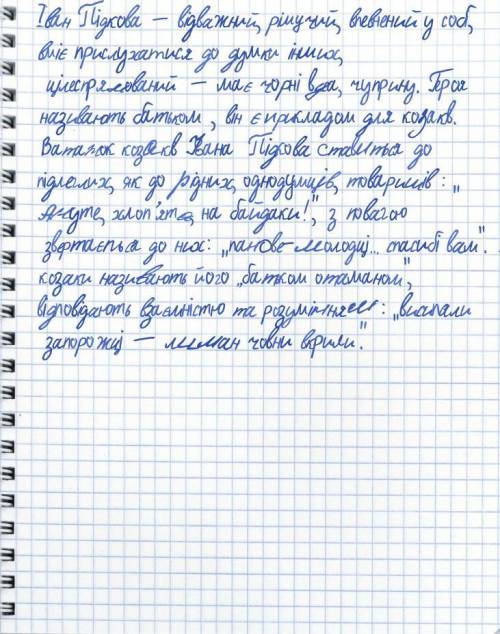 Іван Підкова — відважний, рішучий, впевнений у собі,
вміє прислухатися до думки інших,
цілеспрямований — має чорні вуса, чуприну. Героя
називають батьком, він є прикладом для козаків.
Ватажок козаків Івана Підкова ставиться до
підлеглих, як до рідних, однодумців, товаришів: „
хлоп'ята, на байдаки!", з повагою
звертається до них: „панове-молодці... спасибі вам".
козаки називають його „батьком отаманом",
відповідають взаємністю та розумінням: „висипали
запорожці — лиман човни вкрили."